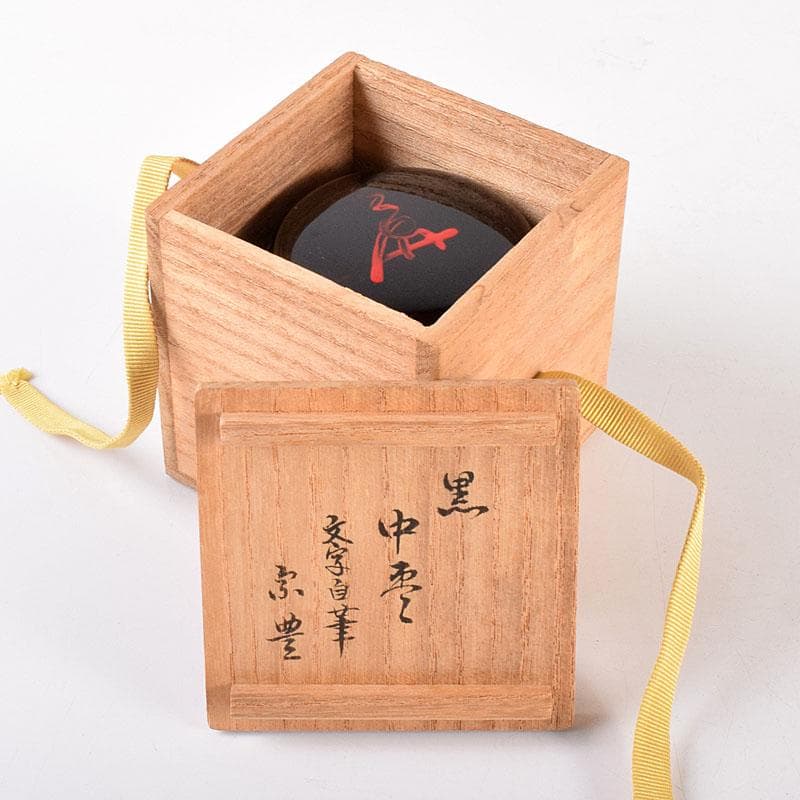 黒
中棗
文字自筆
宗豊